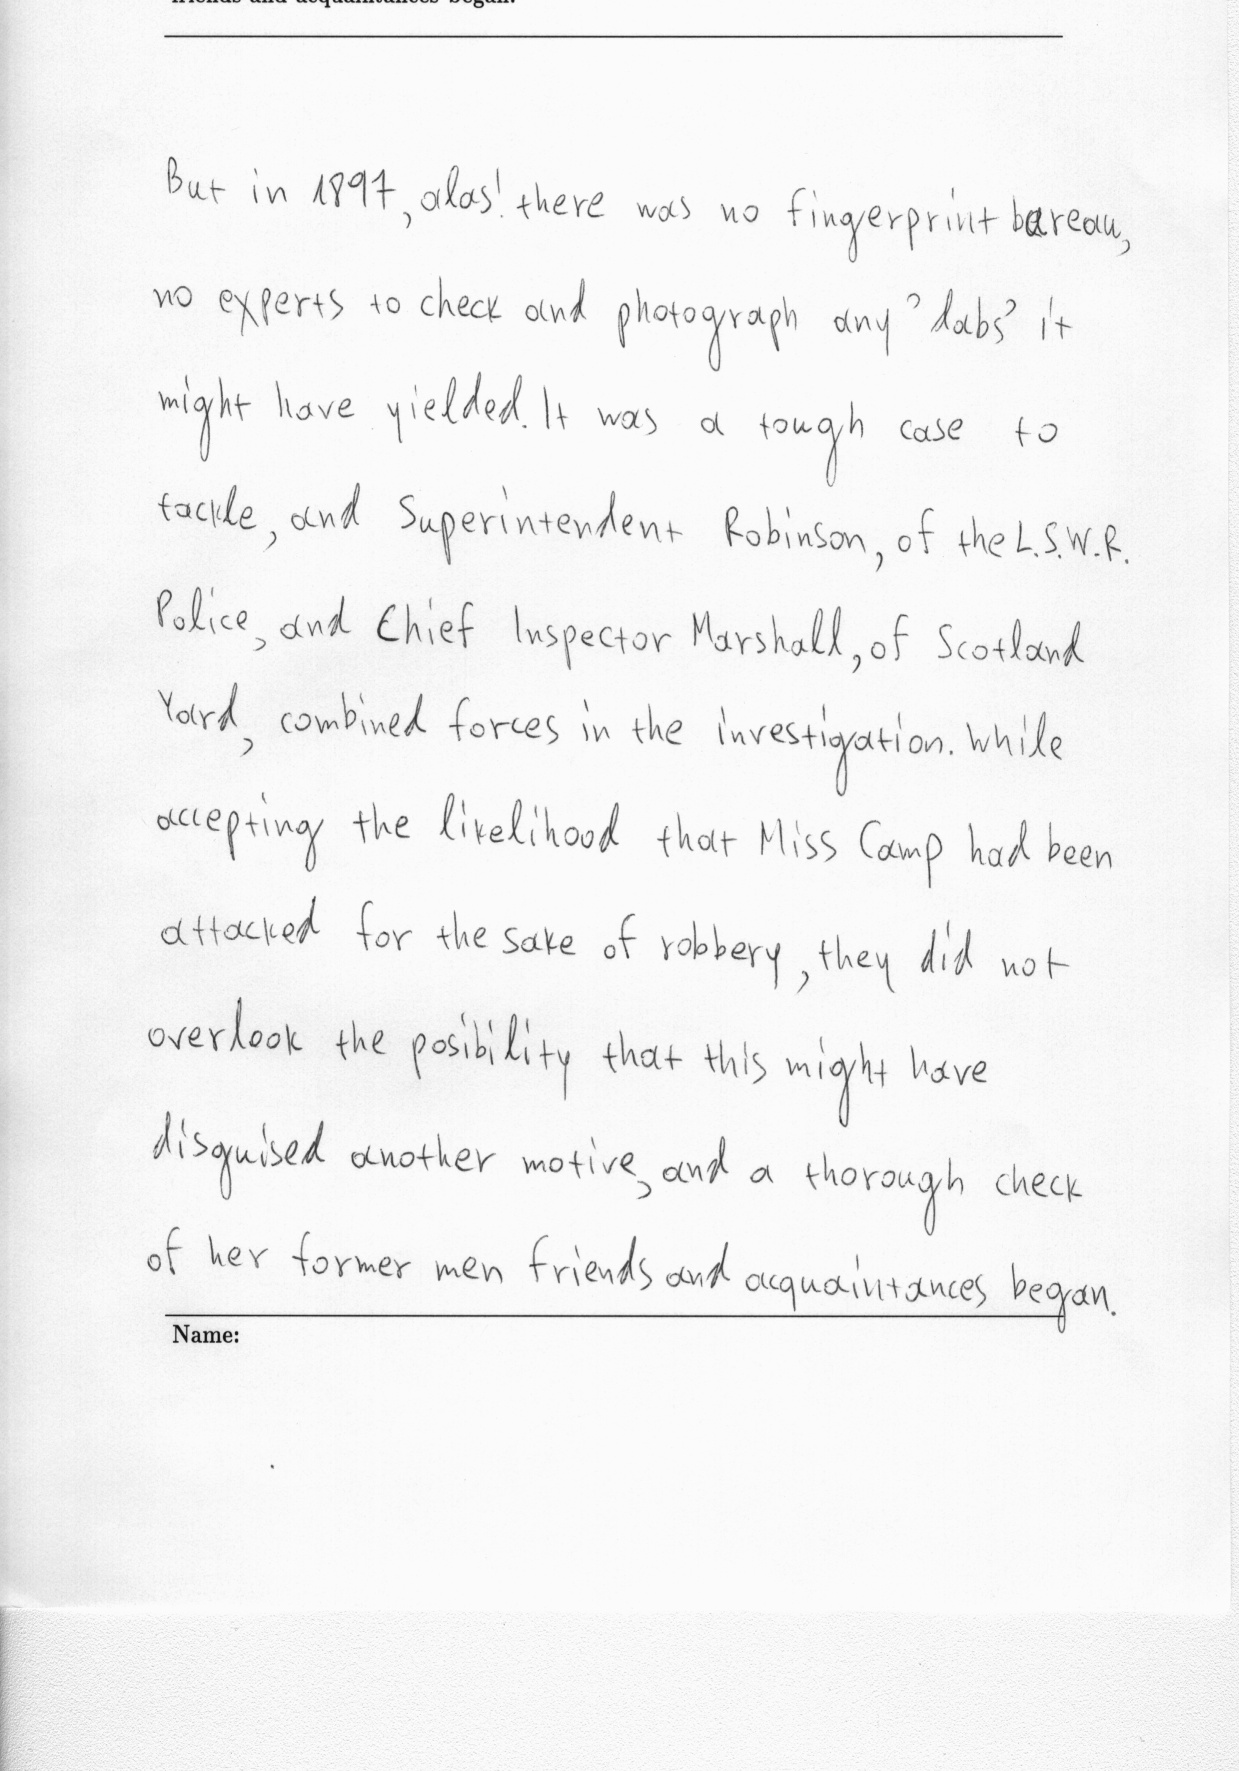 friends and acquaintances began.
But in 1897, alas! there was no fingerprint bareau,
no experts to check and photograph any 'dabs' it
might have yielded. It was a tough case to
tackle, and Superintendent Robinson, of the L.S.W.R.
Police, and Chief Inspector Marshall, of Scotland
Yard, combined forces in the investigation. While
accepting the likelihood that Miss Camp had been
attacked for the sake of robbery, they did not
overlook the posibility that this might have
disguised another motive, and a thorough check
of her former men friends and acquaintances began.
Name: